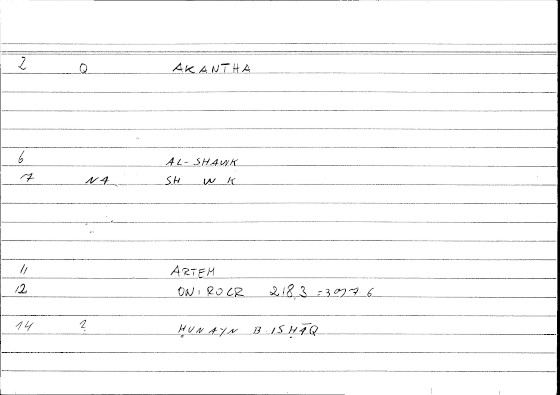 2 Q AKANTHA
6 AL-SHAWK
7 NA SH W K
11 ARTEM
12 ONIROCR 218,3 = 397 6
14 ? ḤUNAYN B ISḤĀQ